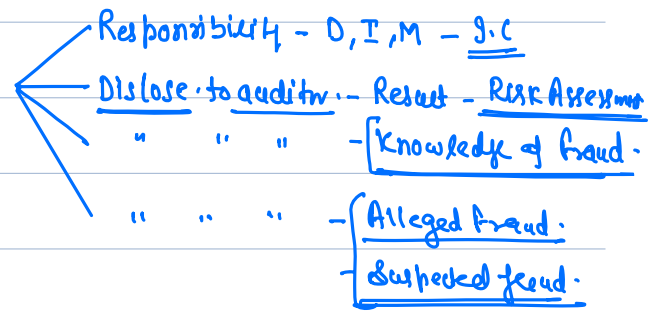 Responsibility - D, I, M - I.C
Dislose to auditor. - Result - Risk Assessment
" " " - Knowledge of fraud.
" " " - Alleged fraud.
- Suspected fraud.